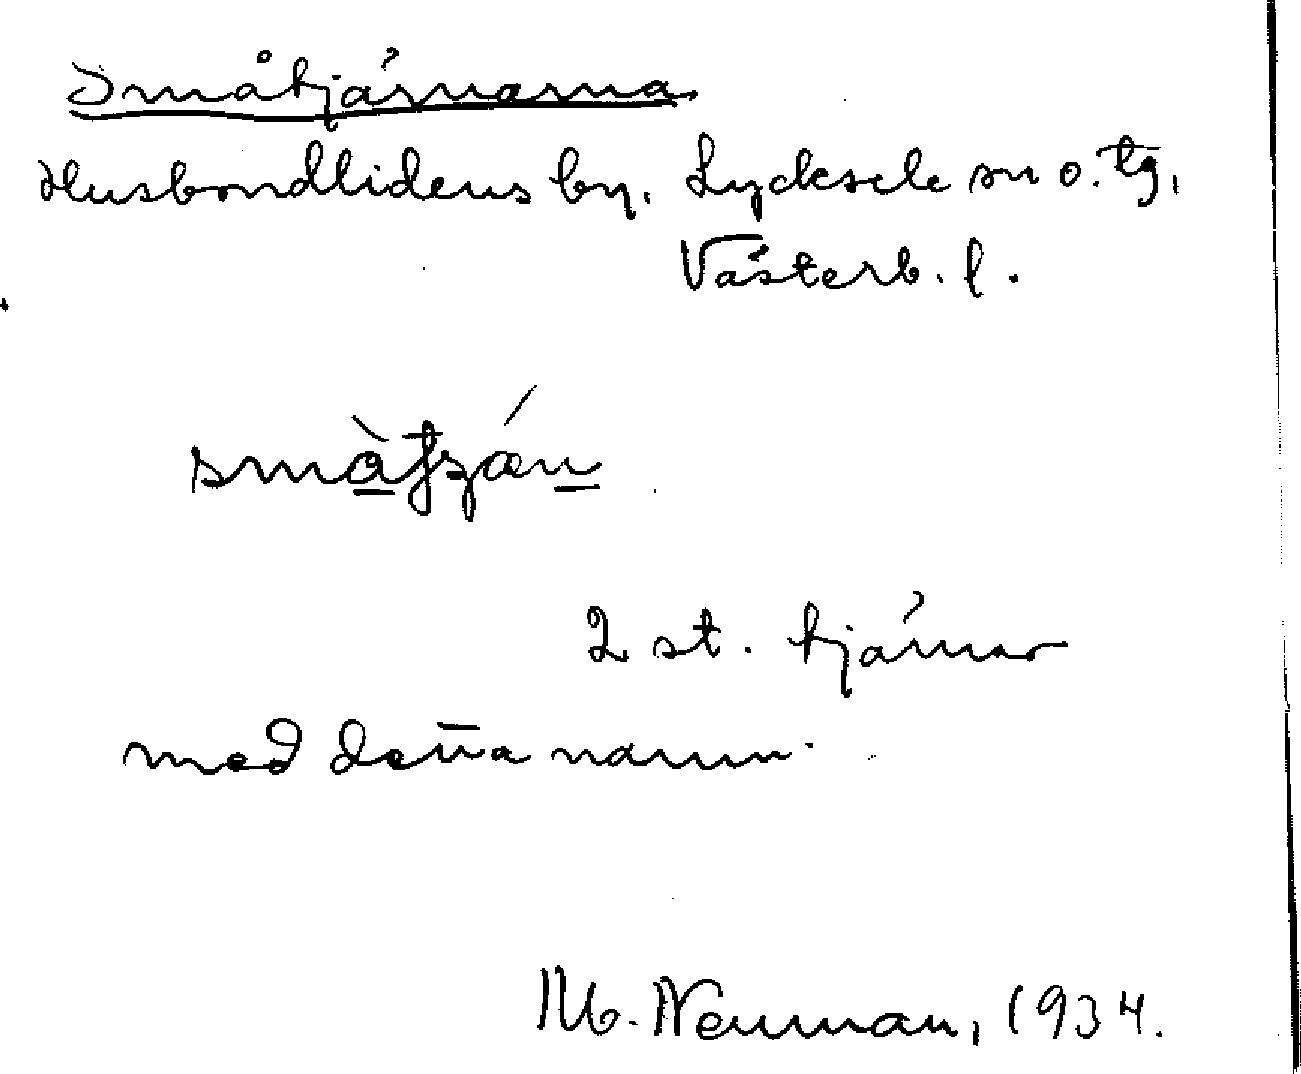 Småtjärnarna
Husbondlidens by. Lycksele sn o. tg.
Västerb. l.
2 st. tjärnar
med deña namn.
M. Neuman, 1934.